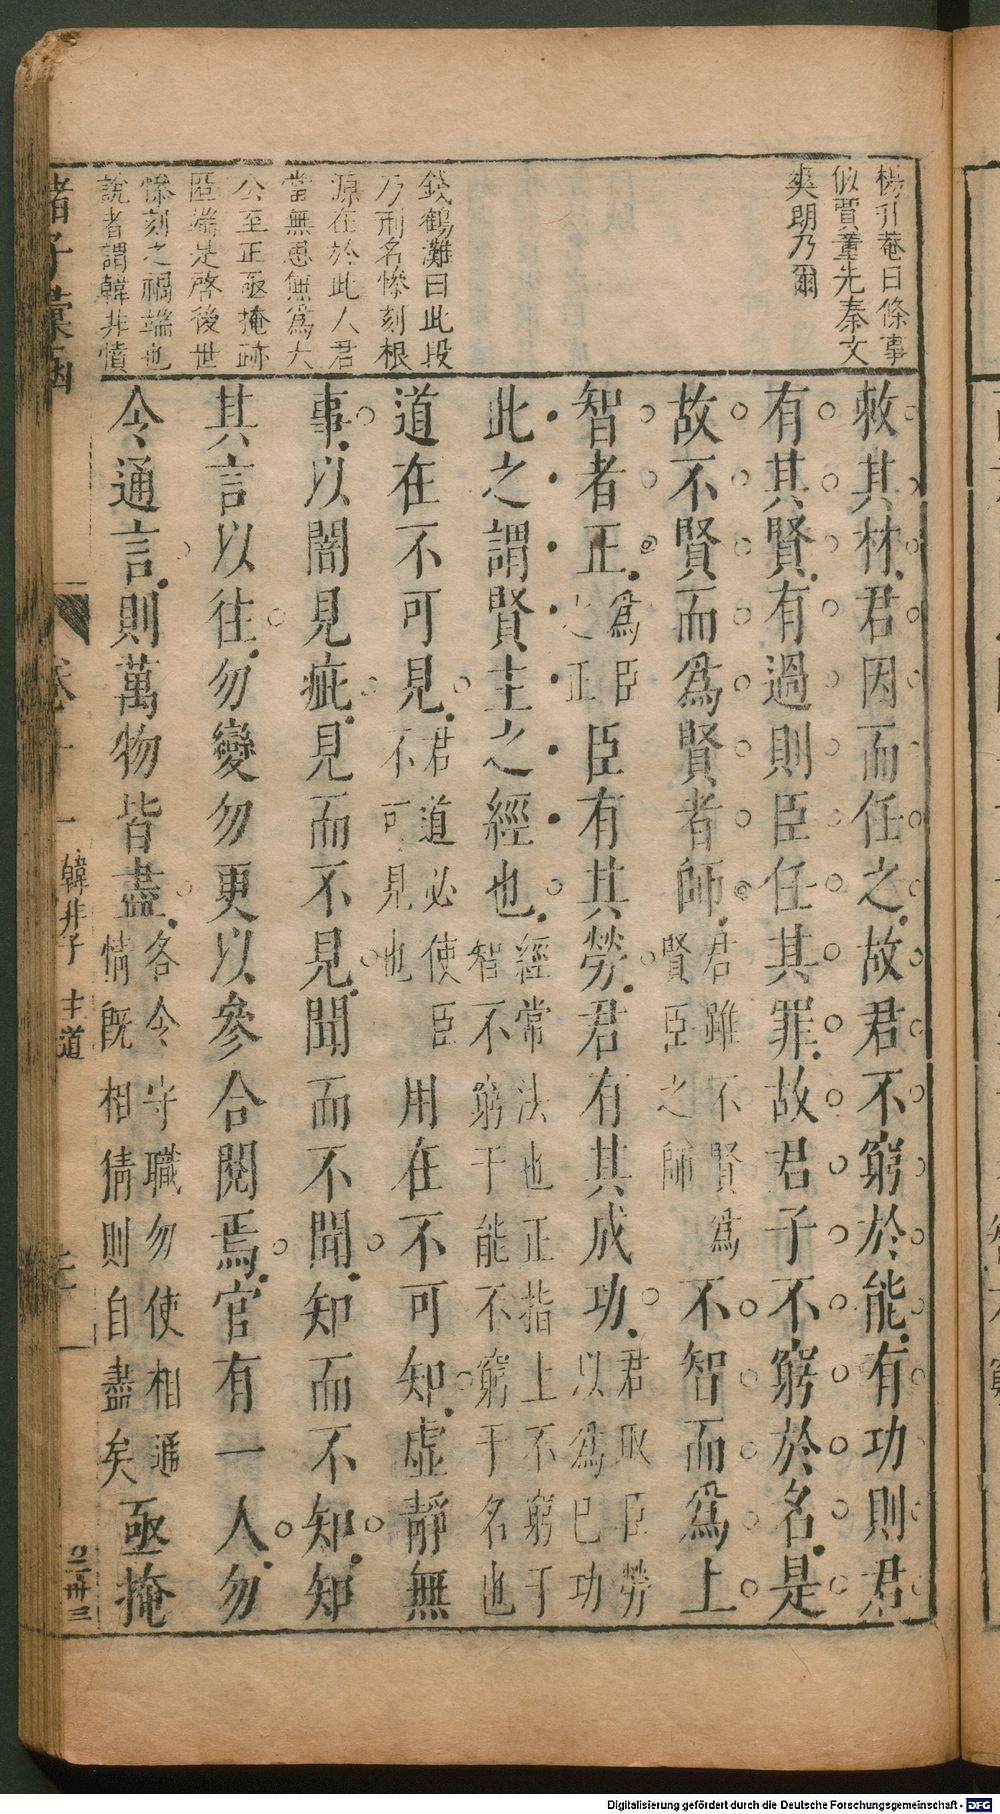 楊升菴曰條事
似賈董先秦文
爽朗乃爾
錢鶴灘曰此段
乃刑名慘刻根
源在於此人君
當無思無為大
公至正亟掩跡
匿端是啓後世
慘刻之禍端也
說者謂韓非憤
救其材君因而任之故君不窮於能有功則君
有其賢有過則臣任其罪故君子不窮於名是
故不賢而為賢者師君雖不賢為賢臣之師不智而為上
智者正為臣之正臣有其勞君有其成功君取臣勞以為已功
此之謂賢主之經也經常法也正指上不窮于智不窮于能不窮于名也
道在不可見君道必使臣不可見也用在不可知虛靜無
事以闇見疵見而不見聞而不聞知而不知知
其言以往勿變勿更以參合閱焉官有一人勿
令通言則萬物皆盡各令守職勿使相通情既相猜則自盡矣亟掩
諸子彙函
卷十一
韓非子 主道
Digitalisierung gefördert durch die Deutsche Forschungsgemeinschaft - DFG